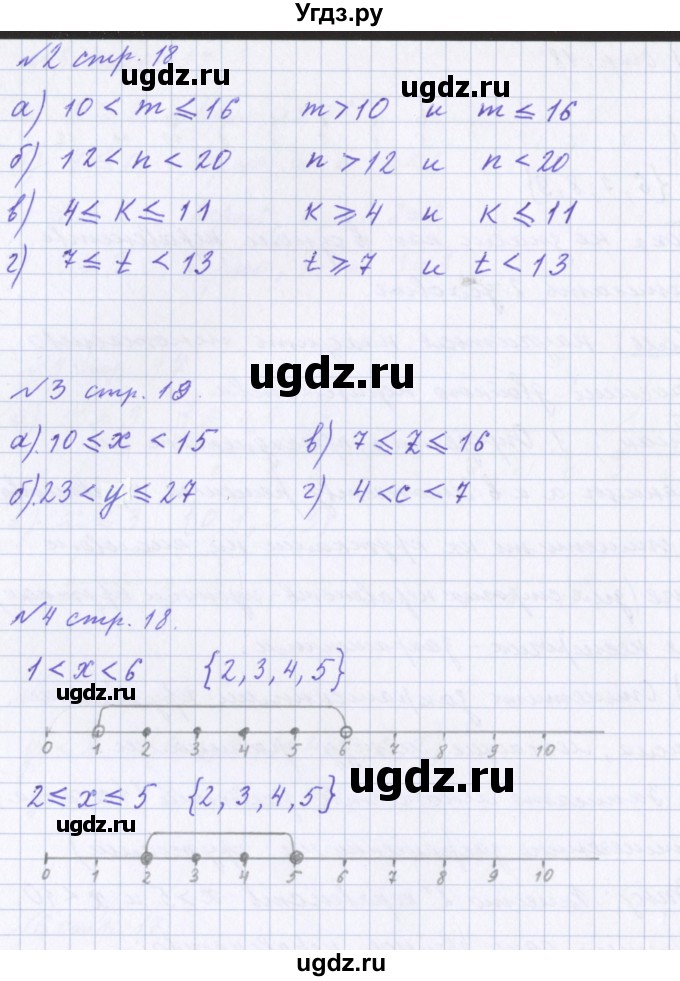 Угдз.ру
№2 стр. 18
ugdz.ru
ugdz.ru
а) 10 < m ⩽ 16 m > 10 и m ⩽ 16
б) 12 < n < 20 n > 12 и n < 20
в) 4 ⩽ K ⩽ 11 K ⩾ 4 и K ⩽ 11
г) 7 ⩽ t < 13 t ⩾ 7 и t < 13
ugdz.ru
№3 стр. 18.
а). 10 ⩽ x < 15 в) 7 ⩽ z ⩽ 16
б). 23 < y ⩽ 27 г) 4 < c < 7
№4 стр. 18.
1 < x < 6 {2, 3, 4, 5}
ugdz.ru
0 1 2 3 4 5 6 7 8 9 10
ugdz.ru
2 ⩽ x ⩽ 5 {2, 3, 4, 5}
ugdz.ru
0 1 2 3 4 5 6 7 8 9 10
ugdz.ru